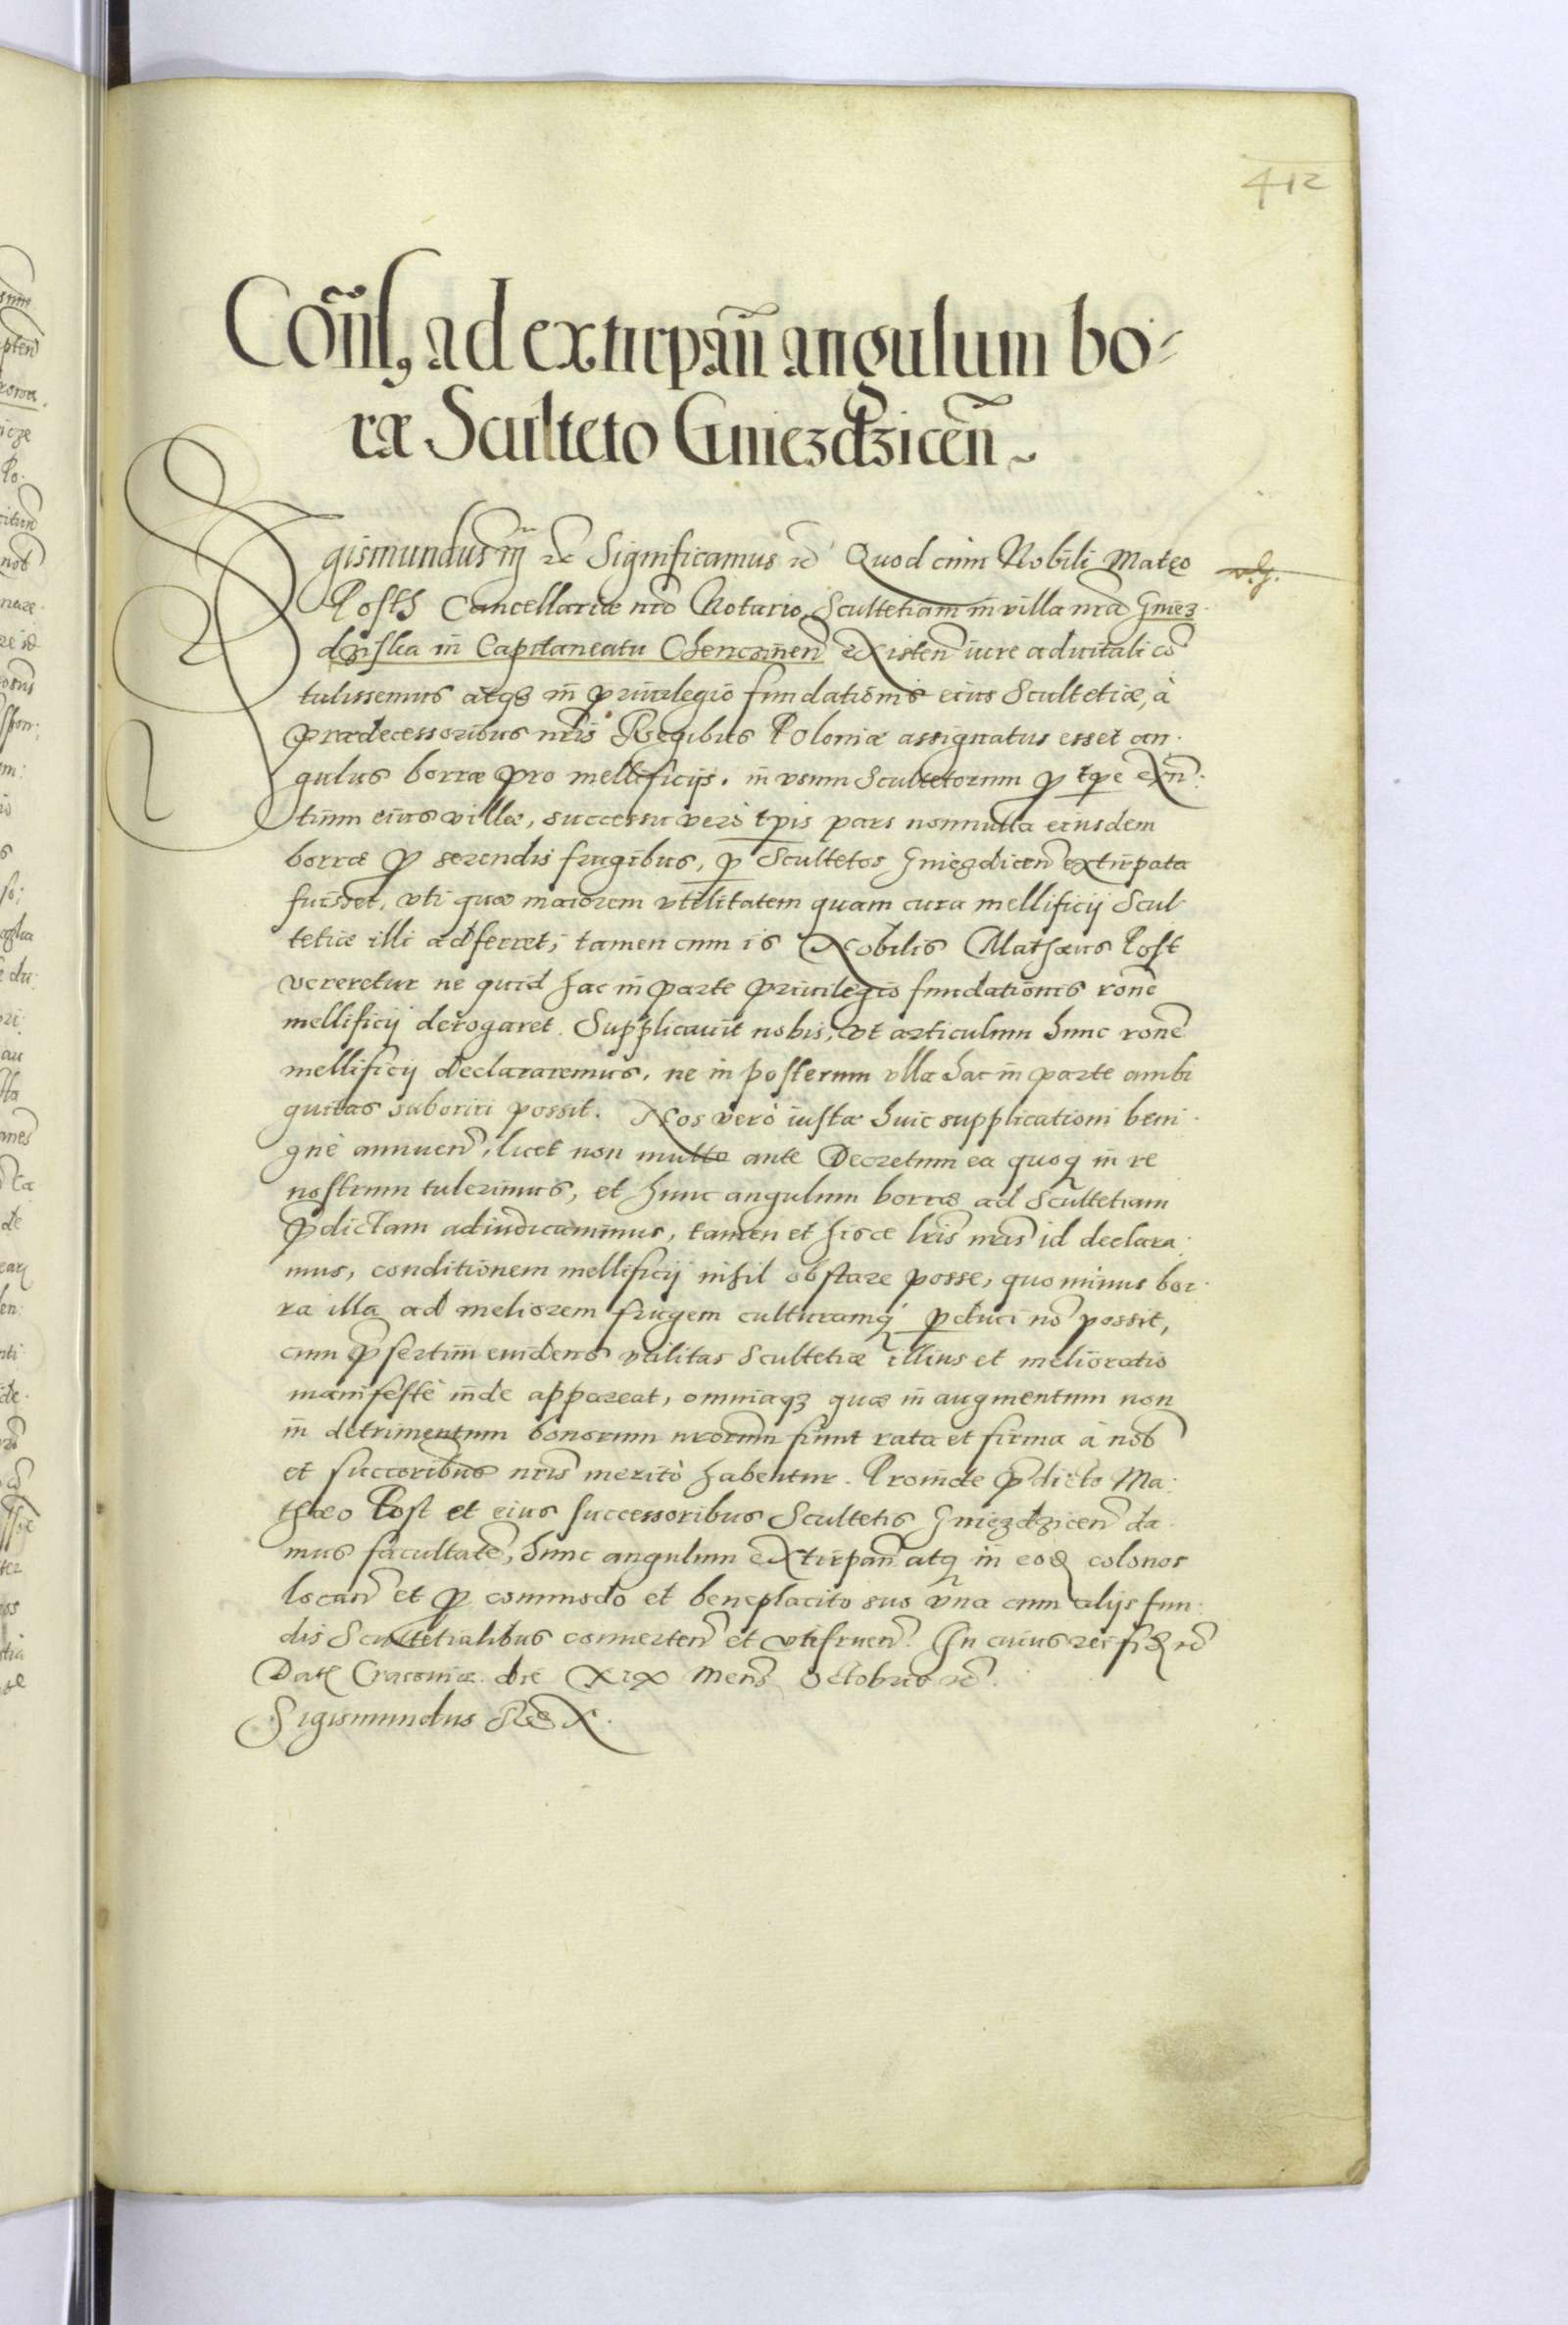 412
Cons, ad extirpañ angulum bo-
ræ Sculteto Gniezdzicen̄
Sigismundus III etc Significamus etc Quod cum Nobili Mateo
Posth Cancellariæ nræ Notario Scultetiam in villa nra Gniez-
dziska in Capitaneatu Chencinen existen iure aduitali cō
tulissemus atq3 in priuilegio fundationis eius Scultetiæ, à
Prædecessoribus nris Regibus Poloniæ assignatus esset an-
gulus borræ pro mellificijs, in vsum Scultetorum p tpe exn̄-
tium eius villæ, successu verò tpis pars nonnulla eiusdem
borræ p serendis frugibus, p Scultetos Gniezdicen extirpata
fuisset, vti quæ maiorem vtilitatem quam cura mellificij Scul-
tetiæ illi adferret; tamen cum is Nobilis Mathæus Post
vereretur ne quid hac in parte priuilegio fundationis rone
mellificij derogaret. Supplicauit nobis, vt articulum hunc rone
mellificij declararemus, ne in posterum vlla hac in parte ambi
guitas suboriri possit. Nos verò iustæ huic supplicationi beni-
gnè annuen, licet non multo ante Decretum ea quoq in re
nostrum tulerimus, et hunc angulum borræ ad Scultetiam
pdictam adiudicauimus, tamen et hisce lris nris id declara-
mus, conditionem mellificij nihil obstare posse, quo minus bor-
ra illa ad meliorem frugem culturamq pduci nō possit,
cum psertim euidens vtilitas Scultetiæ illius et melioratio
manifestè inde appareat, omniaq3 quæ in augmentum non
in detrimentum bonorum nrorum fiunt rata et firma à nob
et succoribus nris meritò habentur. Proinde pdicto Ma-
thæo Post et eius successoribus Scultetis Gniezdzicen da-
mus facultatē, hunc angulum extirpan atq in eod colonos
locan et p commodo et beneplacito suo vna cum alijs fun-
dis Scultetialibus conuerten et vtifruen. In cuius rei fid etc
Dat Cracouiæ die XIX Mens Octobris etc.
Sigismundus Rex.